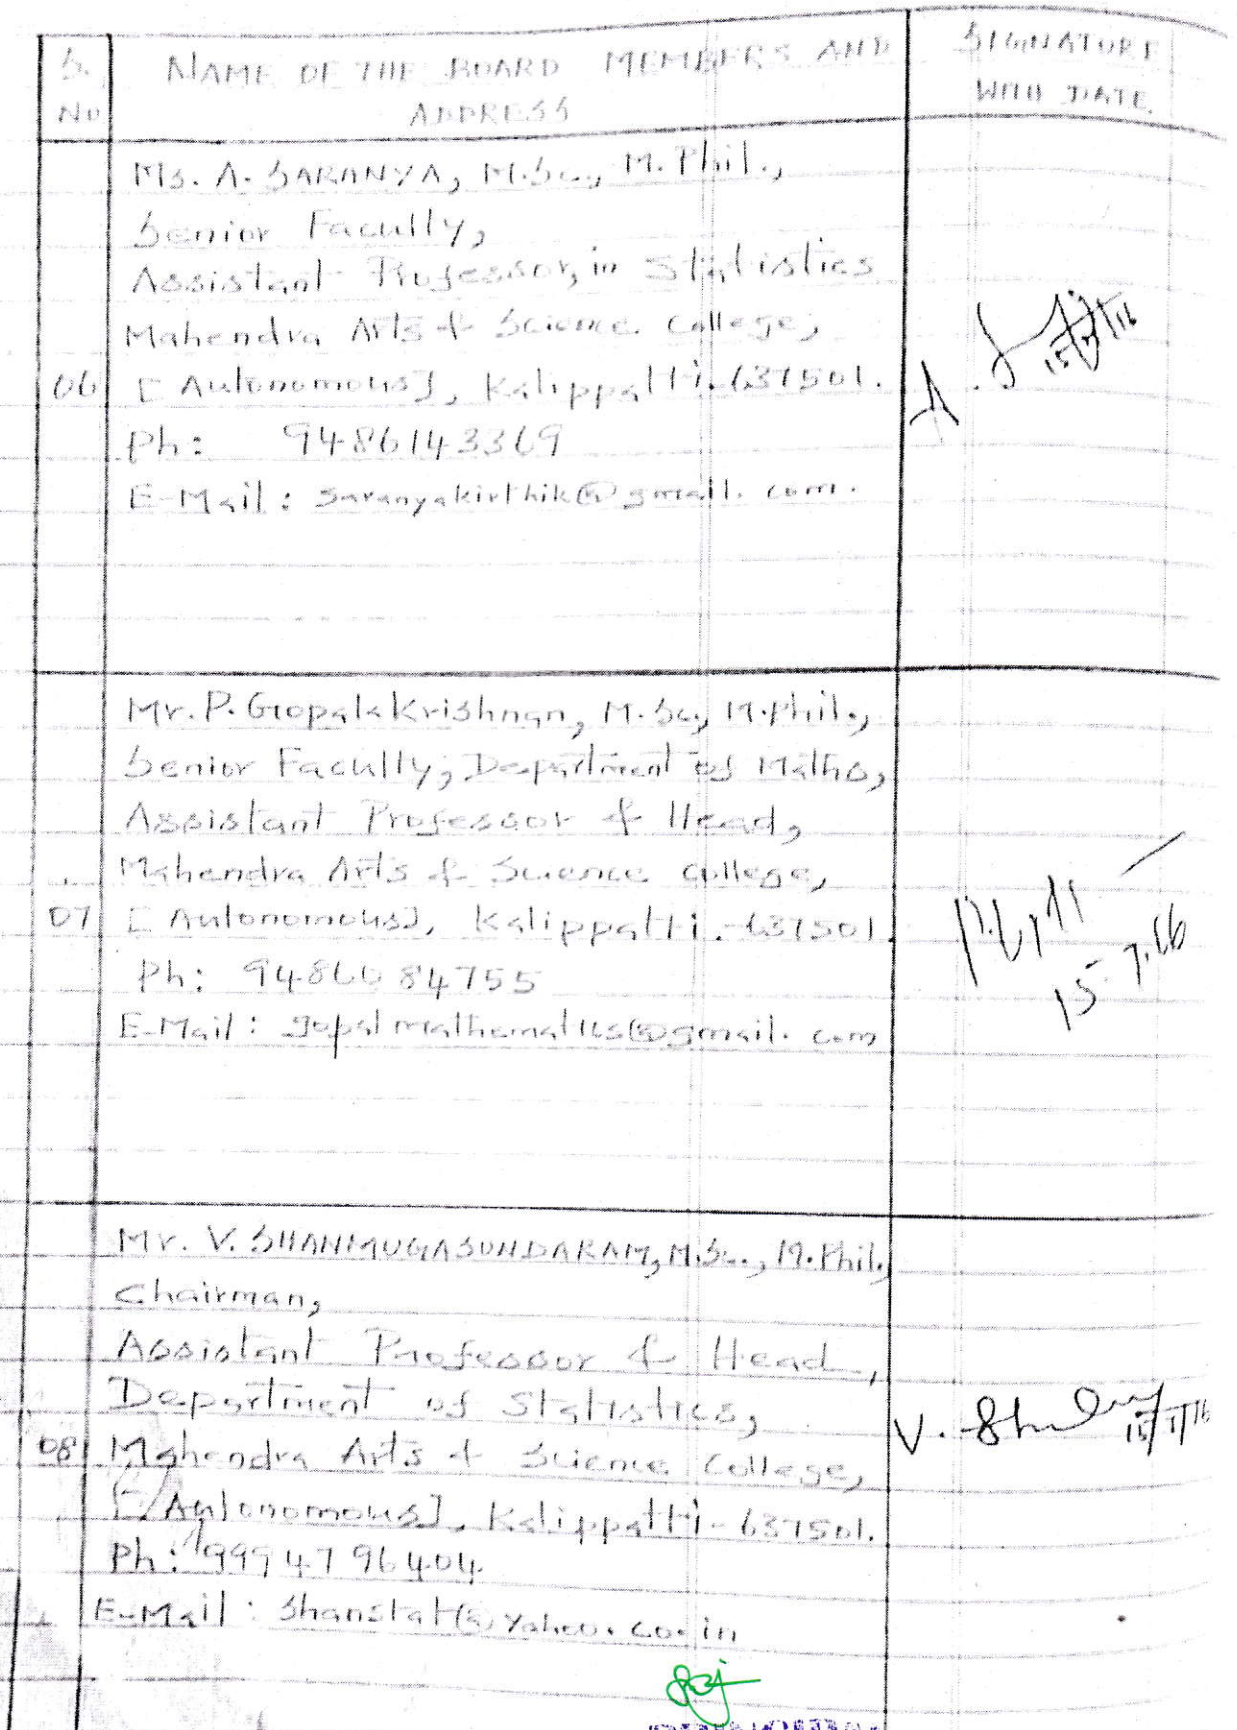 S. No
NAME OF THE BOARD MEMBERS AND ADDRESS
SIGNATURE WITH DATE.
Ms. A. SARANYA, M.Sc., M.Phil.,
Senior Faculty,
Assistant Professor, in Statistics
Mahendra Arts & Science College,
06
[Autonomous], Kalippatti. 637501.
Ph: 9486143369
E-Mail: saranyakirthik@gmail.com.
A.
15/7/16
Mr. P. Gopalakrishnan, M.Sc., M.Phil.,
Senior Faculty, Department of Maths,
Assistant Professor & Head,
Mahendra Arts & Science College,
07
[Autonomous], Kalippatti.-637501.
Ph: 94860 84755
E-Mail: gopalmathematics@gmail.com
15.7.16
Mr. V. SHANMUGASUNDARAM, M.Sc., M.Phil.,
Chairman,
Assistant Professor & Head,
Department of Statistics,
08
Mahendra Arts & Science College,
[Autonomous], Kalippatti-637501.
Ph: 99947 96404
E-Mail: Shanstat@yahoo.co.in
V.
15/7/16